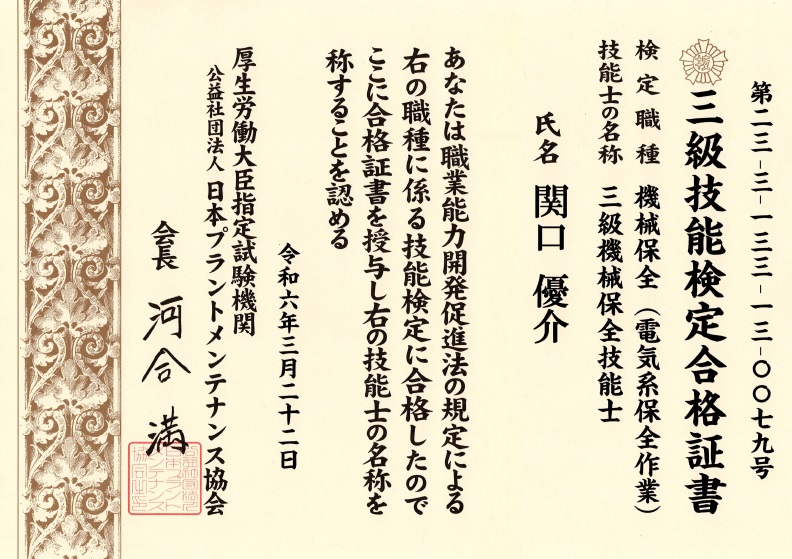 第二三-三-一三三-一三-〇〇七九号
三級技能検定合格証書
検定職種 機械保全（電気系保全作業）
技能士の名称 三級機械保全技能士
氏名 関口 優介
あなたは職業能力開発促進法の規定による
右の職種に係る技能検定に合格したので
ここに合格証書を授与し右の技能士の名称を
称することを認める
令和六年三月二十二日
厚生労働大臣指定試験機関
公益社団法人 日本プラントメンテナンス協会
会長 河合 満